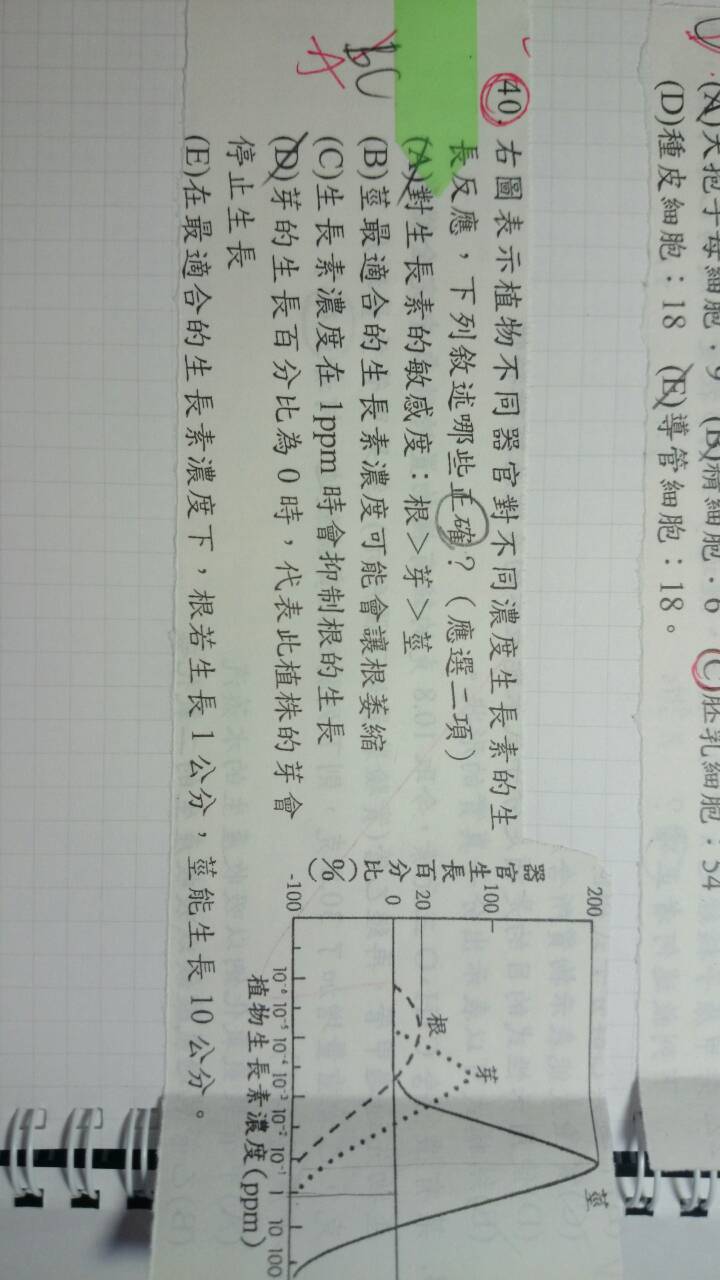 (A)大孢子母細胞：9 (B)精細胞：6 (C)胚乳細胞：54
(D)種皮細胞：18 (E)導管細胞：18。
40. 右圖表示植物不同器官對不同濃度生長素的生
長反應，下列敘述哪些正確？（應選二項）
(A)對生長素的敏感度：根＞芽＞莖
(B)莖最適合的生長素濃度可能會讓根萎縮
(C)生長素濃度在 1ppm 時會抑制根的生長
(D)芽的生長百分比為 0 時，代表此植株的芽會
停止生長
(E)在最適合的生長素濃度下，根若生長 1 公分，莖能生長 10 公分。
BC
A
器官生長百分比(%)
200
100
20
0
-100
根
芽
莖
10⁻⁶ 10⁻⁵ 10⁻⁴ 10⁻³ 10⁻² 10⁻¹ 1 10 100
植物生長素濃度(ppm)